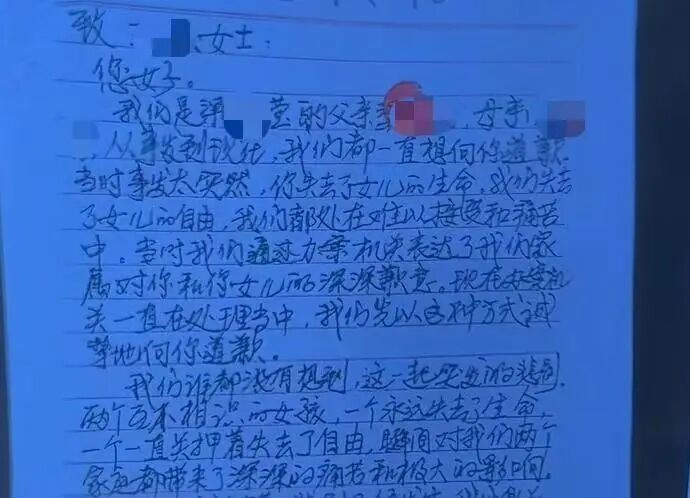 致：女士：
您好。
我们是梁莹的父亲梁，母亲
从事发到现在，我们都一直想向你道歉
当时事发太突然，你失去了女儿的生命，我们失去
了女儿的自由，我们都处在难以接受和痛苦
中。当时我们通过办案机关表达了我们家
属对你和你女儿的深深歉意。现在办案机
关一直在处理当中，我们先以这种方式诚
挚地向你道歉。
我们谁都没有想到，这一起突发的悲剧，
两个互不相识的女孩，一个永远失去了生命，
一个一直关押着失去了自由，瞬间对我们两个
家庭都带来了深深的痛苦和极大的影响。